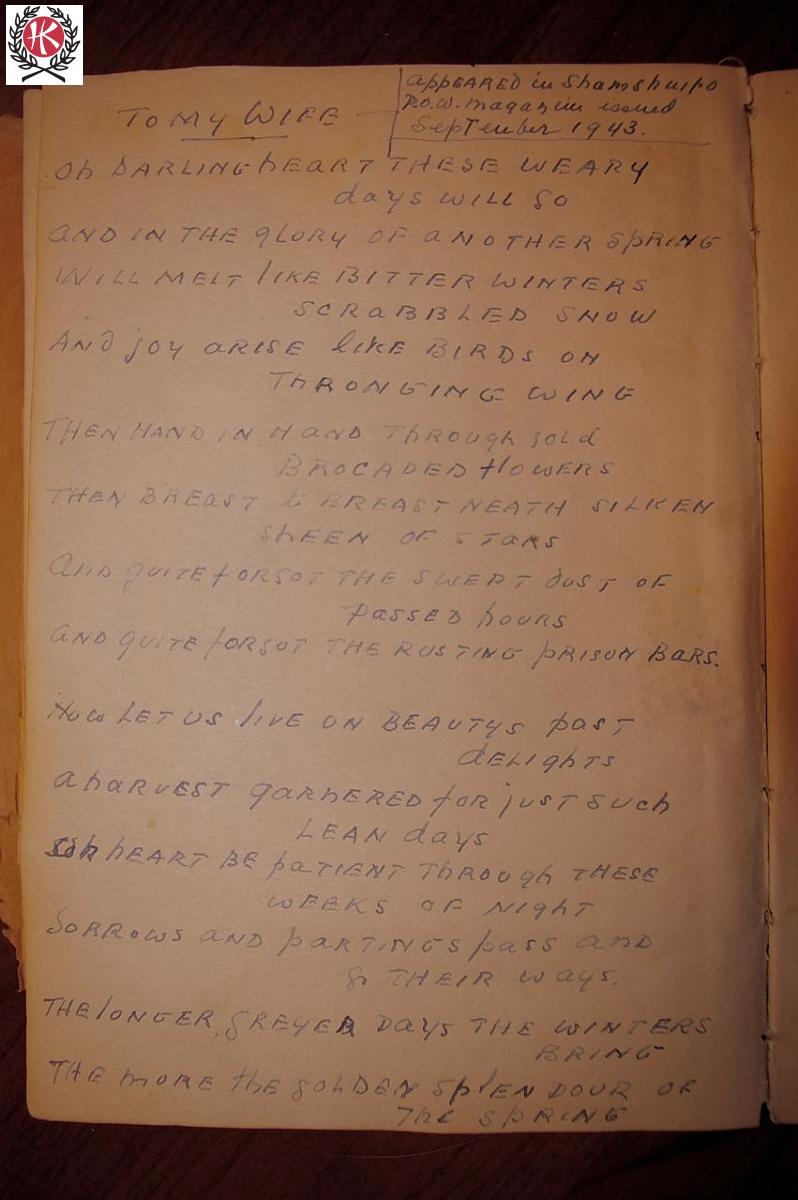 HK
appeared in Shamshuipo
P.O.W. magazine issued
September 1943.
To My Wife
Oh Darling heart these weary
days will go
And in the glory of another spring
Will melt like bitter winters
scrabbled snow
And joy arise like birds on
thronging wing
Then hand in hand through gold
brocaded flowers
Then breast to breast neath silken
sheen of stars
And quite forgot the swept dust of
passed hours
And quite forgot the rusting prison bars.
Now let us live on beautys past
delights
A harvest garnered for just such
lean days
Oh heart be patient through these
weeks of night
Sorrows and partings pass and
go their ways.
The longer, greyer days the winters
bring
The more the golden splendour of
the spring